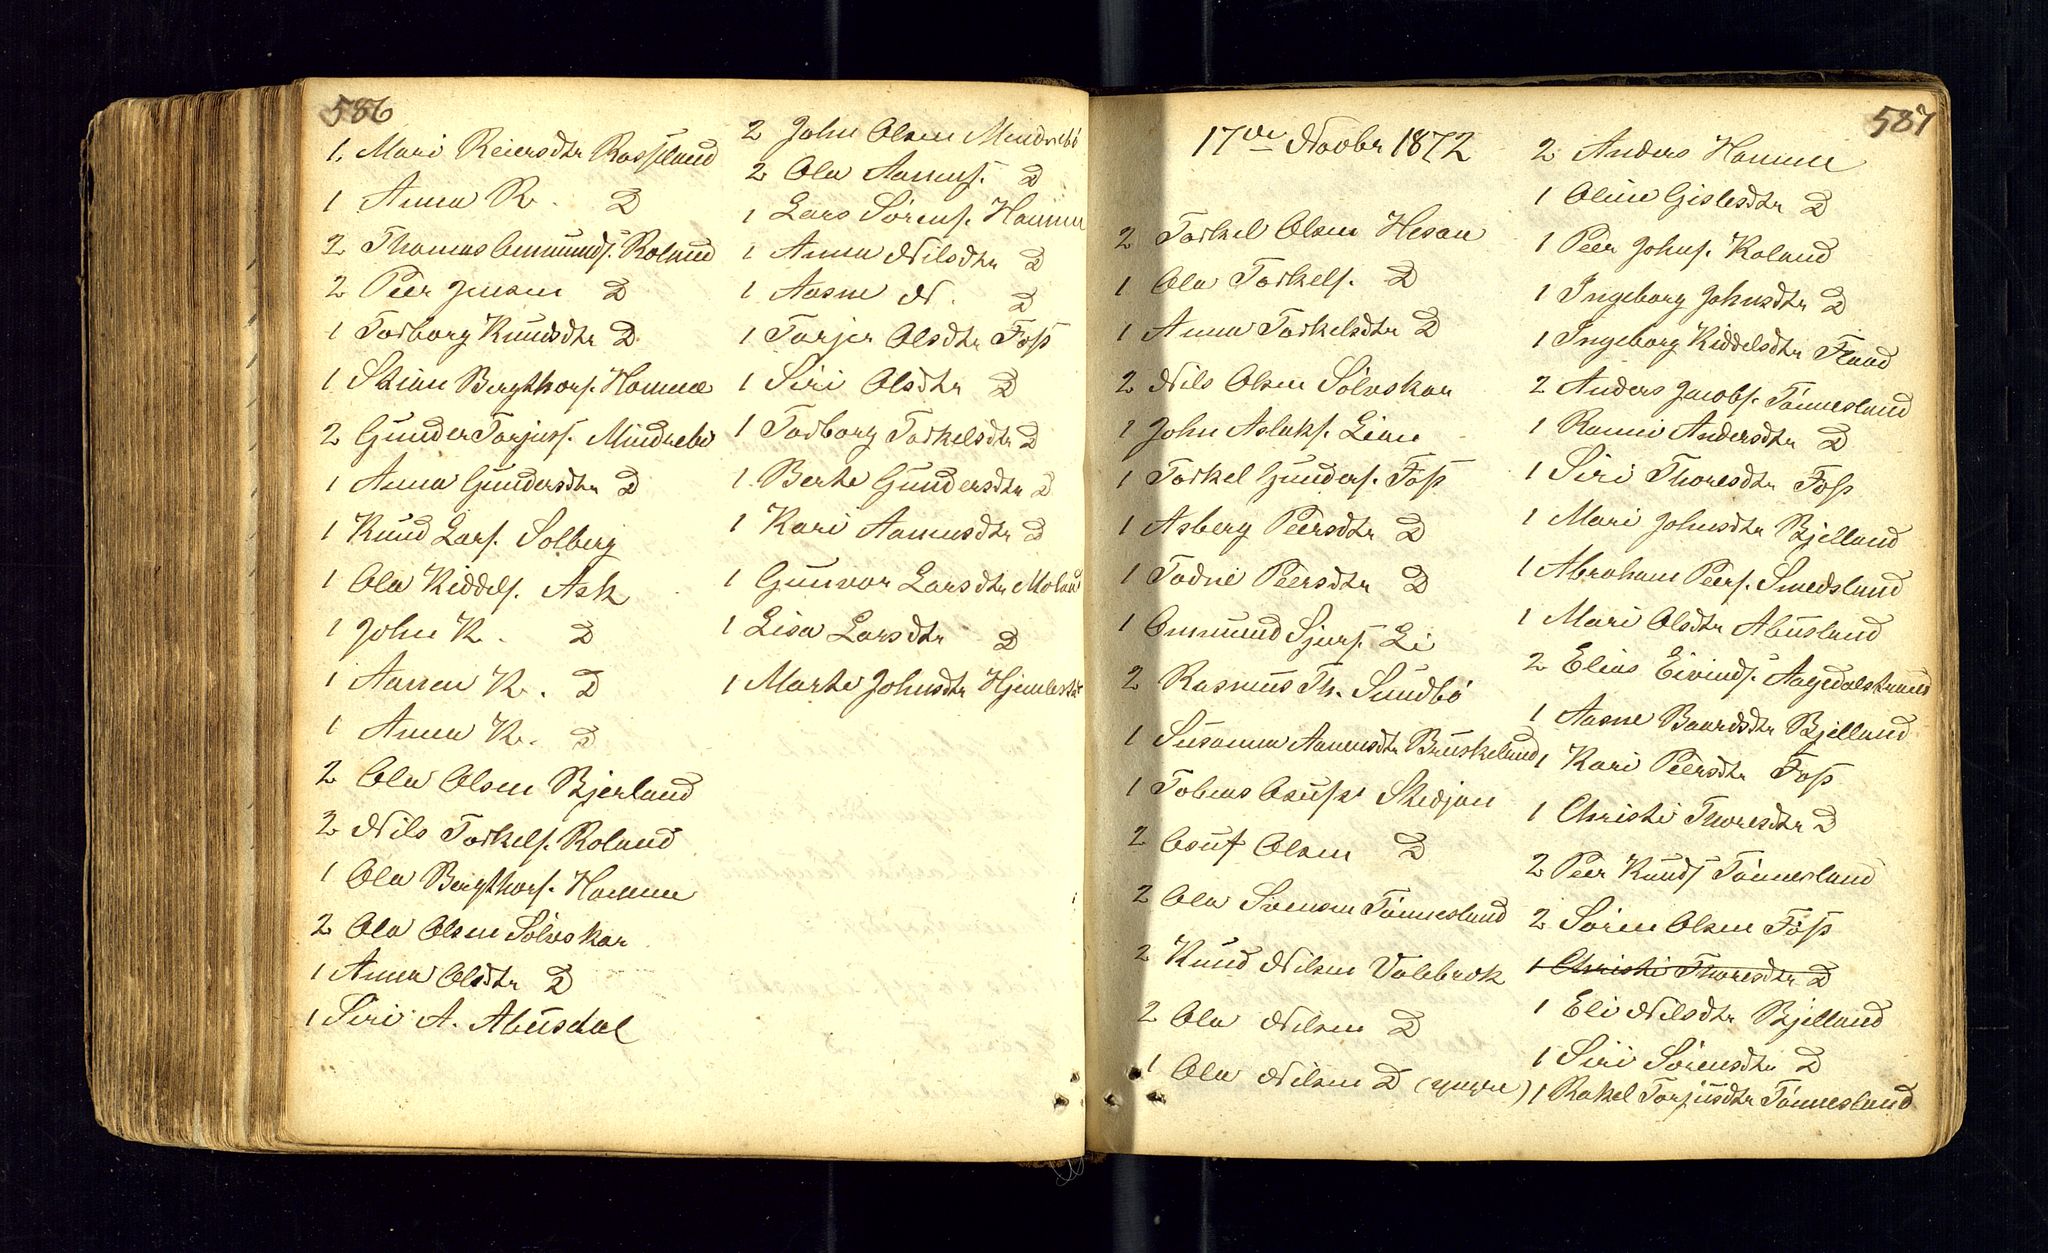 586
1. Mari Reiersdtr Rossland
1 Anna R. D
2 Thomas Ommunds. Roland
2 Peer Jensen D
1 Torborg Knudsdtr D
1 Stian Bergthors. Homme
2 Gunder Torjuss. Mindrebø
1 Anna Gundersdtr D
1 Knud Lars. Solberg
1 Ola Kiddels. Ask
1 John K. D
1 Aanen K. D
1 Anna K. D
2 Ola Olsen Bjerland
2 Nils Torkels. Roland
1 Ola Bergthors. Homme
2 Ola Olsen Sølvskar
1 Anna Olsdtr D
1 Siri A. Abusdal
2 John Olsen Mindrebø
2 Ola Aanens. D
1 Lars Sørens. Homme
1 Anna Nilsdtr D
1 Aasne N. D
1 Torjer Olsdtr Foss
1 Siri Olsdtr D
1 Torborg Torkelsdtr D
1 Berte Gundersdtr D
1 Kari Aanensdtr D
1 Gunvor Larsdtr Moland
1 Lisa Larsdtr D
1 Marte Johnsdtr
587
17de Novbr 1872
2 Torkel Olsen Hesaa
1 Ola Torkels. D
1 Anna Torkelsdtr D
2 Nils Olsen Sølvskar
1 John Aslaks. Lien
1 Torkel Gunders. Foss
1 Asberg Peersdtr D
1 Todne Peersdtr D
1 Ommund Sjurs. Li
2 Rasmus Th. Sundbø
1 Susanna Aanensdtr Bruskeland
1 Tobias Osufs.
2 Osuf Olsen D
2 Ola Svensen Tønnesland
2 Knud Nilsen Valebrok
2 Ola Nilsen D
1 Ola Nilsen D (yngre)
2 Anders Homme
1 Oline Gislesdtr D
1 Peer Johns. Roland
1 Ingeborg Johnsdtr D
1 Ingeborg Kiddelsdtr Flaad
2 Anders Jacobs. Tønnesland
1 Ranni Andersdtr D
1 Siri Thoresdtr Foss
1 Mari Johnsdtr Bjelland
1 Abraham Peers. Smedsland
1 Mari Olsdtr Abusland
2 Elias Eivinds. Aagedalstrand
1 Aasne Baardsdtr Bjelland
1 Kari Peersdtr Foss
1 Christi Thoresdtr D
2 Peer Knuds. Tønnesland
2 Søren Olsen Foss
1 Christi Thoresdtr D
1 Eli Nilsdtr Bjelland
1 Siri Sørensdtr D
1 Rakel Torjusdtr Tønnesland